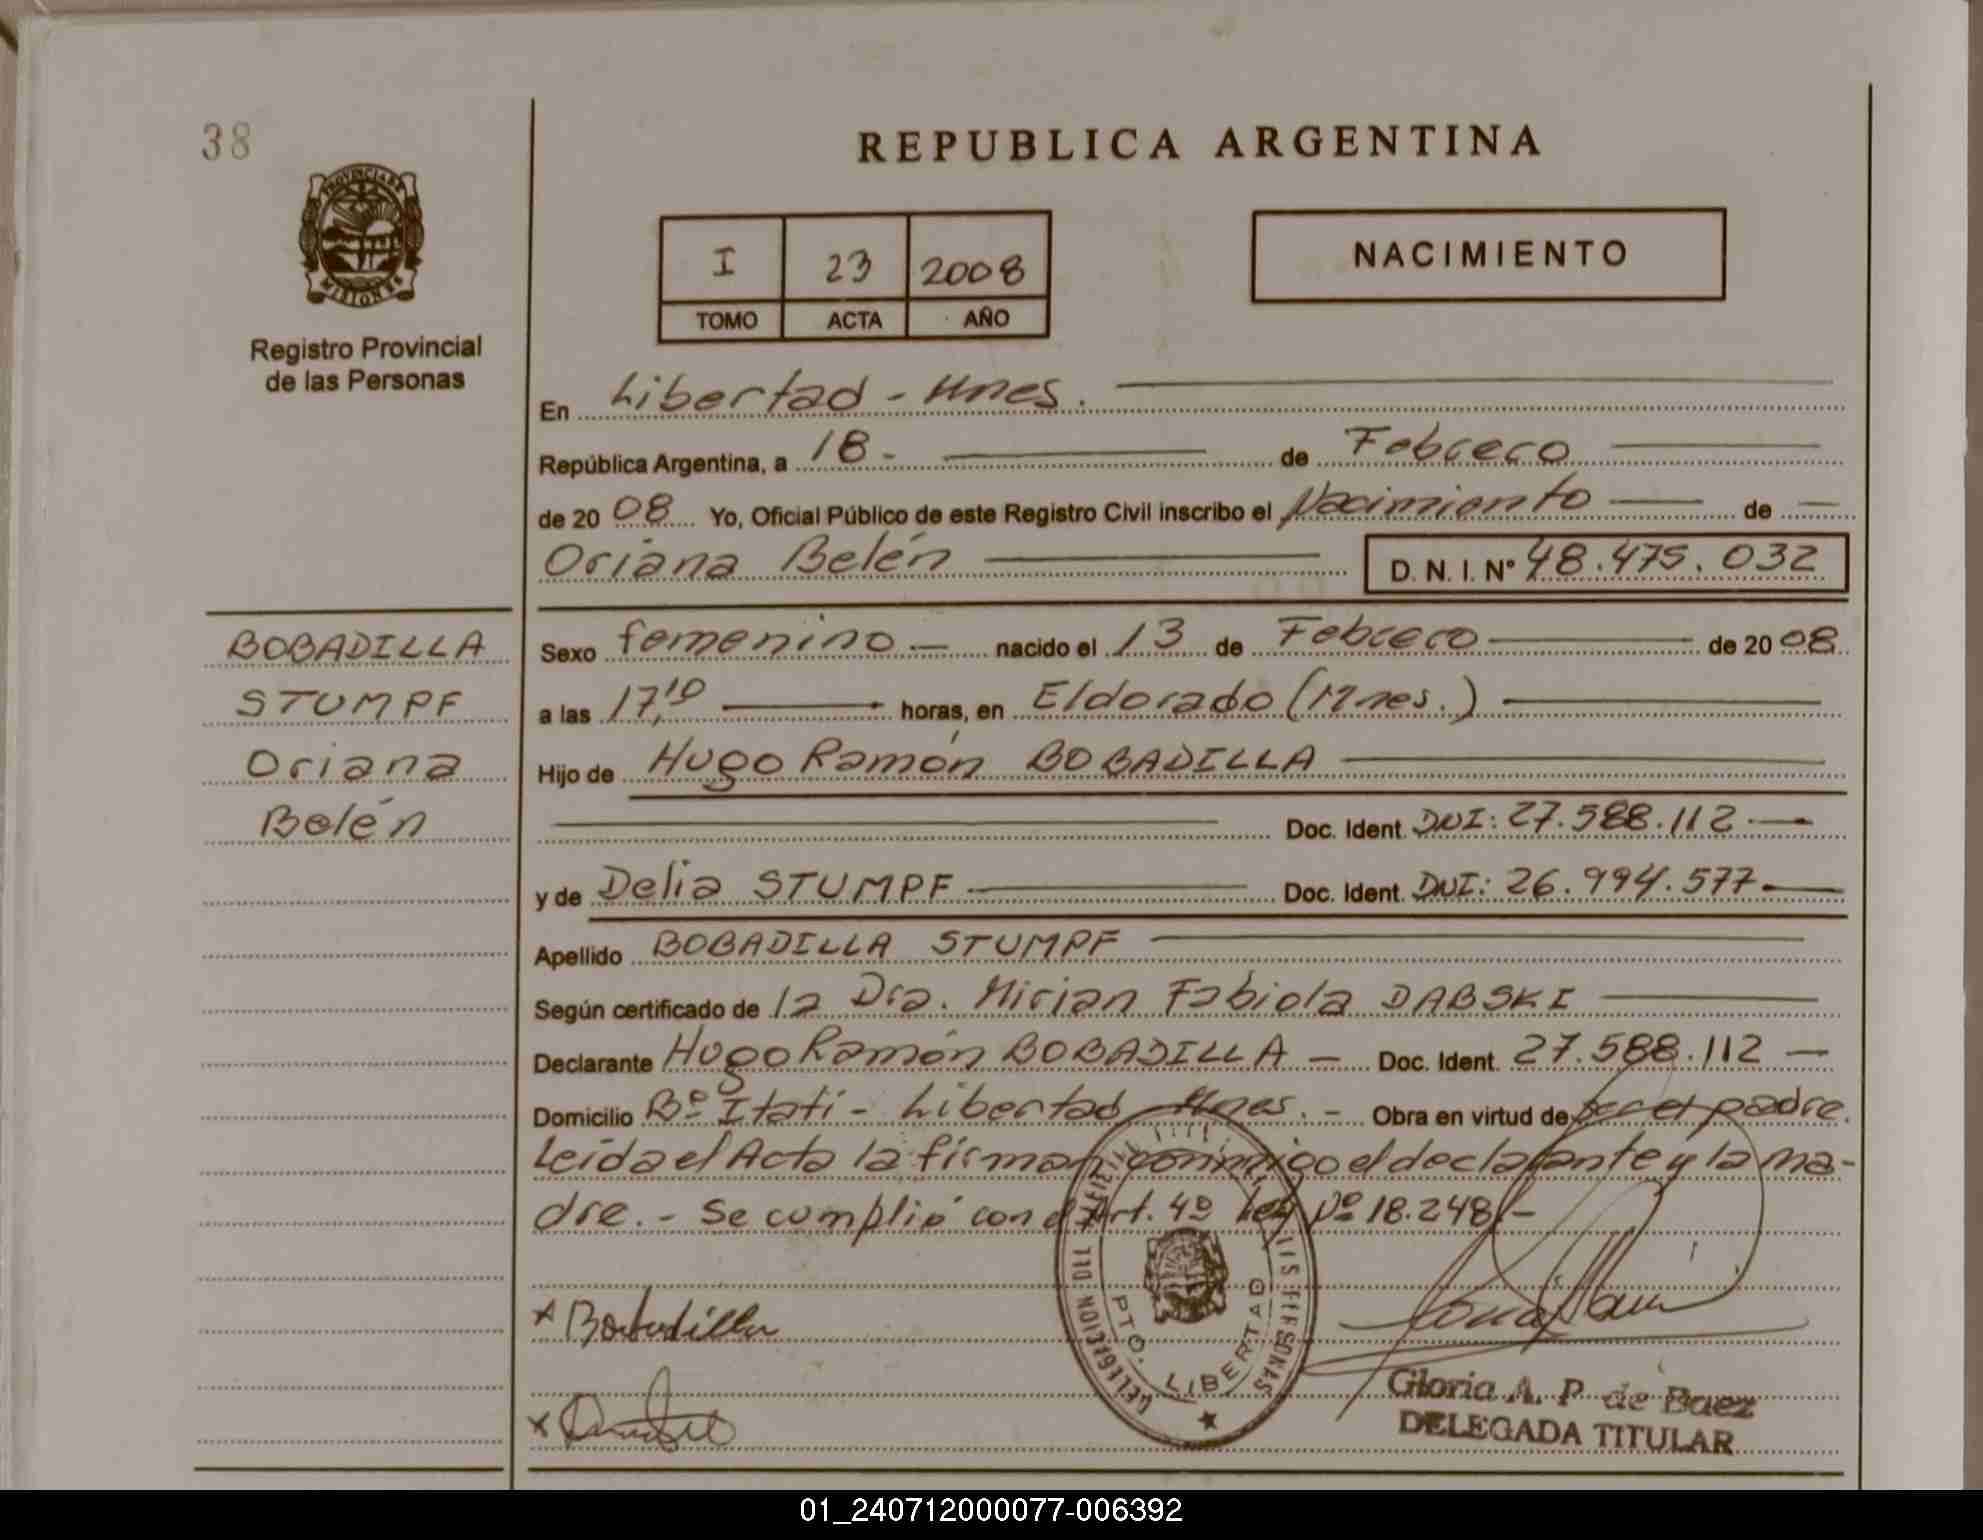 38
REPUBLICA ARGENTINA
PROVINCIA DE
MISIONES
Registro Provincial
de las Personas
I 23 2008
TOMO ACTA AÑO
NACIMIENTO
En Libertad - Mnes.
República Argentina, a 18. de Febrero
de 20 08 Yo, Oficial Público de este Registro Civil inscribo el Nacimiento de
Oriana Belén D. N. I. Nº 48.475.032
BOBADILLA
STUMPF
Oriana
Belén
Sexo femenino nacido el 13 de Febrero de 20 08
a las 17,10 horas, en Eldorado (Mnes.)
Hijo de Hugo Ramón BOBADILLA
Doc. Ident. DNI: 27.588.112
y de Delia STUMPF Doc. Ident. DNI: 26.994.577
Apellido BOBADILLA STUMPF
Según certificado de la Dra. Mirian Fabiola DABSKI
Declarante Hugo Ramón BOBADILLA Doc. Ident. 27.588.112
Domicilio Bº Itatí - Libertad Mnes. - Obra en virtud de ser el padre.
Leída el Acta la firman conmigo el declarante y la ma-
dre. - Se cumplió con el Art. 4º Ley Nº 18.248.-
x Bobadilla
DELEGACION DEL
PTO. LIBERTAD
Gloria A. P. de Baez
DELEGADA TITULAR
01_240712000077-006392